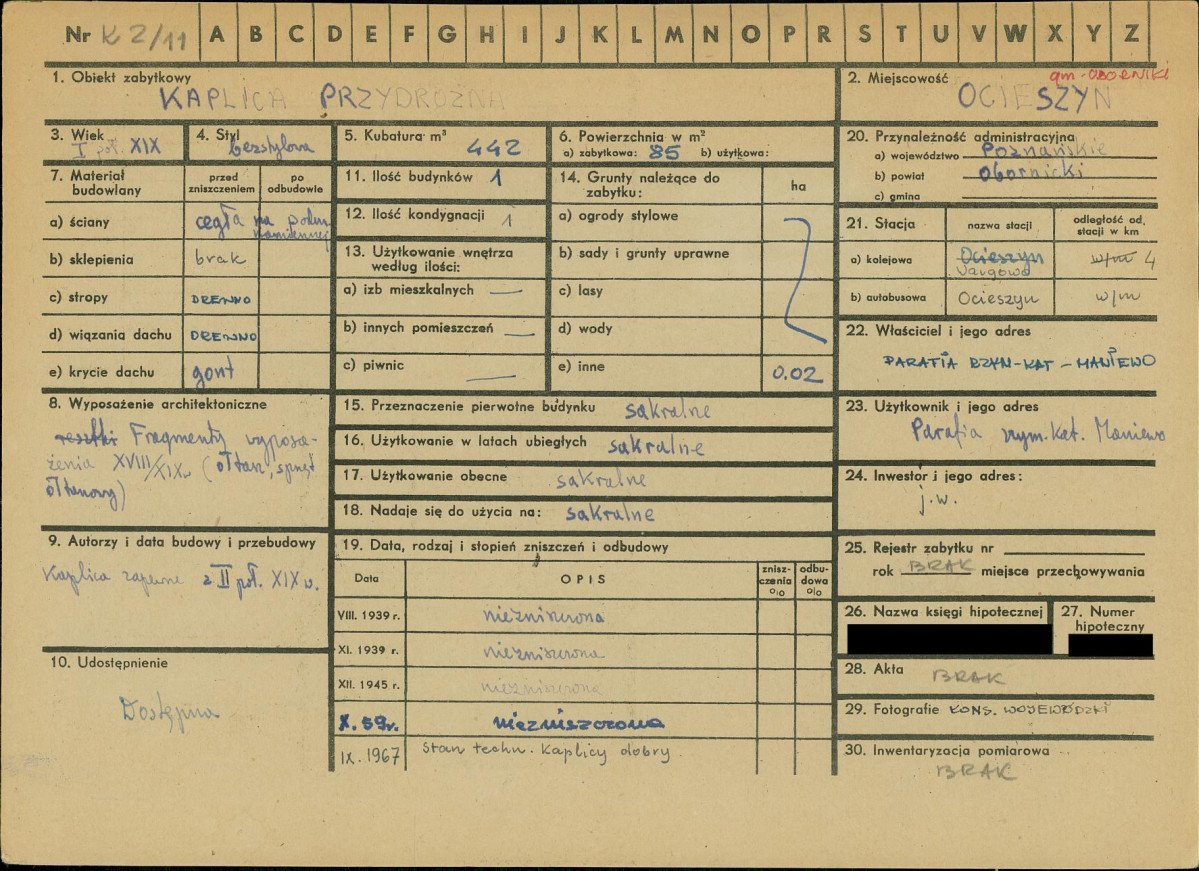 Nr K 2/11 A B C D E F G H I J K L M N O P R S T U V W X Y Z
1. Obiekt zabytkowy
KAPLICA PRZYDROŻNA
2. Miejscowość
gm. OBORNIKI
OCIESZYN
3. Wiek
I poł. XIX
4. Styl
bezstylowa
5. Kubatura m³
442
6. Powierzchnia w m²
a) zabytkowa: 85 b) użytkowa:
20. Przynależność administracyjna
a) województwo Poznańskie
b) powiat Obornicki
c) gmina
7. Materiał budowlany
przed zniszczeniem
po odbudowie
a) ściany cegła na podm. kamiennej
b) sklepienia brak
c) stropy DREWNO
d) wiązania dachu DREWNO
e) krycie dachu gont
11. Ilość budynków 1
12. Ilość kondygnacji 1
13. Użytkowanie wnętrza
według ilości:
a) izb mieszkalnych —
b) innych pomieszczeń —
c) piwnic —
14. Grunty należące do
zabytku:
ha
a) ogrody stylowe
b) sady i grunty uprawne
c) lasy
d) wody
e) inne 0.02
21. Stacja
nazwa stacji
odległość od
stacji w km
a) kolejowa Ocieszyn w/m 4
Vargowo
b) autobusowa Ocieszyn w/m
22. Właściciel i jego adres
PARAFIA RZYM-KAT - MANIEWO
8. Wyposażenie architektoniczne
resztki Fragmenty wyposa-
żenia XVIII/XIX w (ołtarz, sprzęt
ołtarzowy)
15. Przeznaczenie pierwotne budynku sakralne
16. Użytkowanie w latach ubiegłych sakralne
17. Użytkowanie obecne sakralne
18. Nadaje się do użycia na: sakralne
23. Użytkownik i jego adres
Parafia rzym. kat. Maniewo
24. Inwestor i jego adres:
j.w.
9. Autorzy i data budowy i przebudowy
Kaplica zapewne z II poł. XIX w.
19. Data, rodzaj i stopień zniszczeń i odbudowy
Data
OPIS
znisz-
czenia
o/o
odbu-
dowa
o/o
VIII. 1939 r. niezniszczona
XI. 1939 r. niezniszczona
XII. 1945 r. niezniszczona
X. 59 r. niezniszczona
IX. 1967 Stan techn. kaplicy dobry.
25. Rejestr zabytku nr
rok BRAK miejsce przechowywania
26. Nazwa księgi hipotecznej
27. Numer
hipoteczny
10. Udostępnienie
Dostępna
28. Akta BRAK
29. Fotografie KONS. WOJEWÓDZKI
30. Inwentaryzacja pomiarowa
BRAK